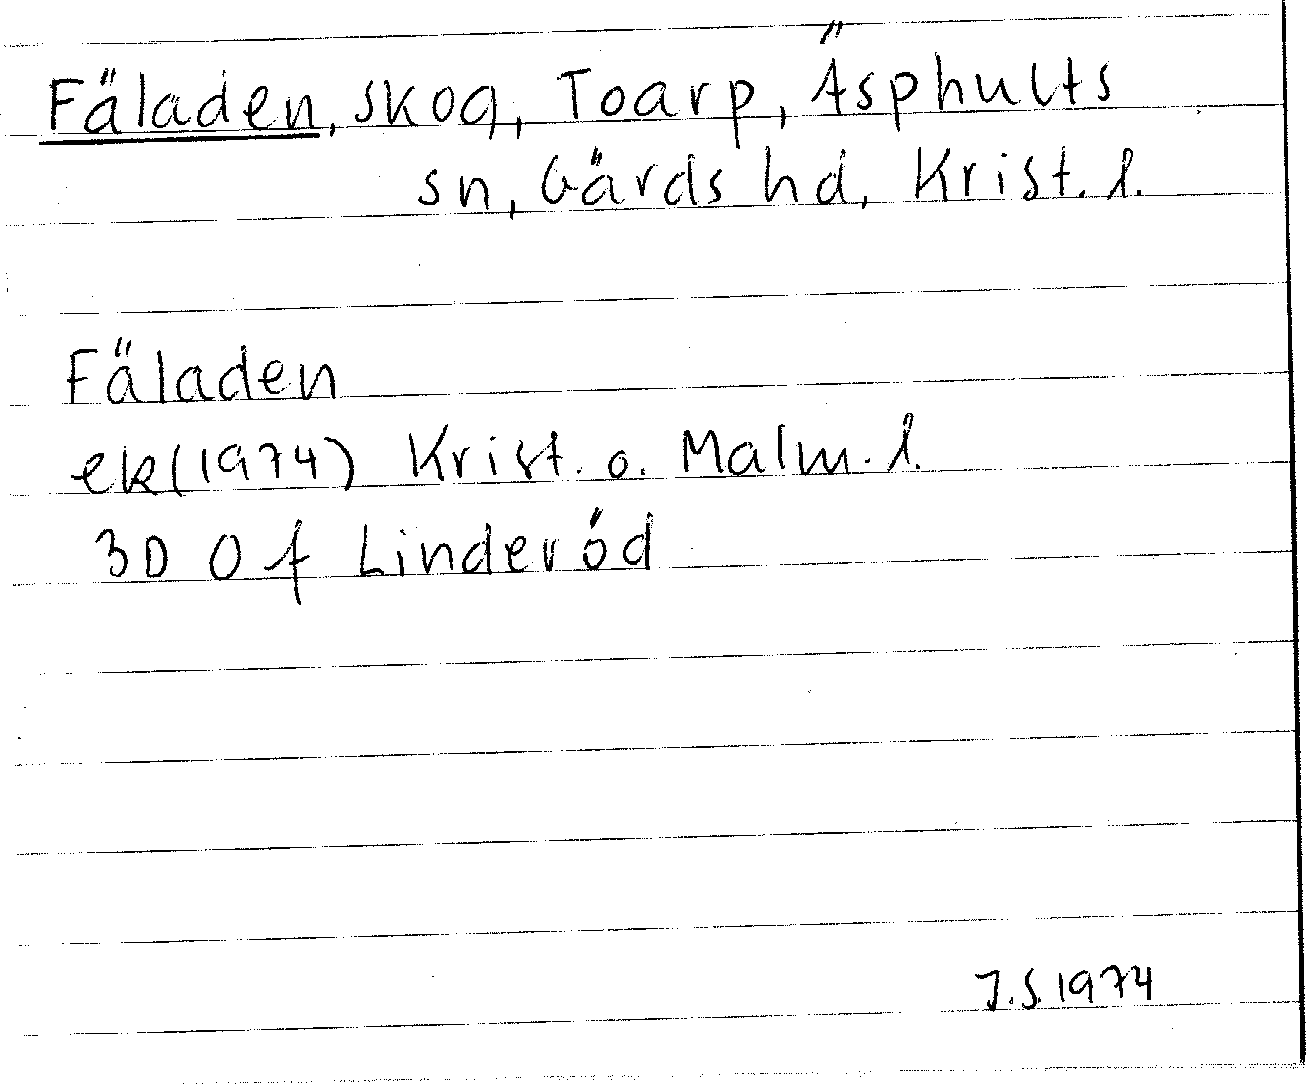 Fäladen, skog, Toarp, Äsphults
sn, Gärds hd, Krist. l.
Fäladen
ek(1974) Krist. o. Malm. l.
3D Of Linderöd
J.S. 1974